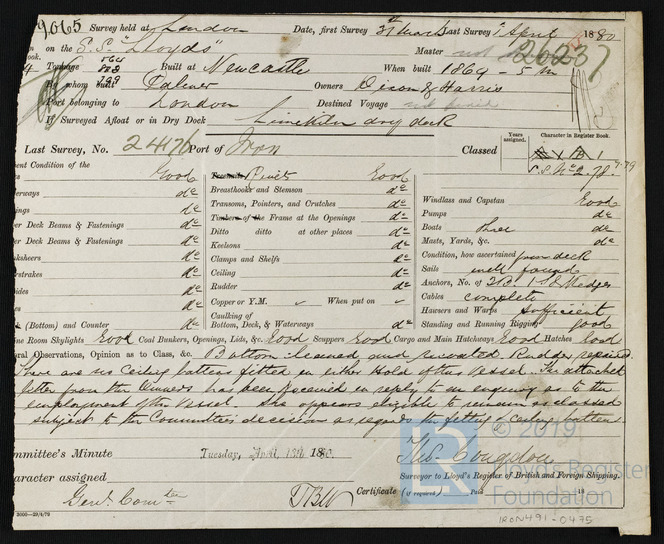 9,065 Survey held at London Date, first Survey 31st March Last Survey 1 April 1880
on the S.S. "Lloyds" Master 26237
Tonnage 564 Built at Newcastle When built 1869 - 5 m
By whom built Palmer Owners Dixon & Harris
Port belonging to London Destined Voyage not fixed
If Surveyed Afloat or in Dry Dock Limekiln dry dock
Last Survey, No. 2476 Port of Iron Classed
Years assigned. Character in Register Book.
S.S. No 2. 78. 4.79
ent Condition of the Good Rivets Good
erways do Breasthooks and Stemson do Windlass and Capstan Good
ings do Transoms, Pointers, and Crutches do Pumps do
er Deck Beams & Fastenings do Timbers of the Frame at the Openings do Boats three do
er Deck Beams & Fastenings do Ditto ditto at other places do Masts, Yards, &c. do
ksheers do Keelsons do Condition, how ascertained from deck
strakes do Clamps and Shelfs do Sails well found
ides do Ceiling do Anchors, No. of 3 B. 1 S & Kedges
es do Rudder do Cables complete
do Copper or Y.M. When put on Hawsers and Warps sufficient
e (Bottom) and Counter do Caulking of Bottom, Deck, & Waterways do Standing and Running Rigging good
ne Room Skylights Good Coal Bunkers, Openings, Lids, &c. Good Scuppers Good Cargo and Main Hatchways Good Hatches Good
ral Observations, Opinion as to Class, &c. Bottom cleaned and recoated. Rudder repaired.
There are no Ceiling battens fitted in either Hold of this Vessel. The attached
letter from the Owners has been received in reply to an enquiry as to the
employment of the Vessel. She appears eligible to remain as classed
subject to the Committee's decision as regards the fitting of cargo battens.
mmittee's Minute Tuesday, April 13th 1880.
Thos. Congdon
Surveyor to Lloyd's Register of British and Foreign Shipping.
haracter assigned
Genl. Comtee
Certificate (if required) Paid 18
3000—29/4/79
IRON491-0475
© 2019
Lloyd's Register
Foundation